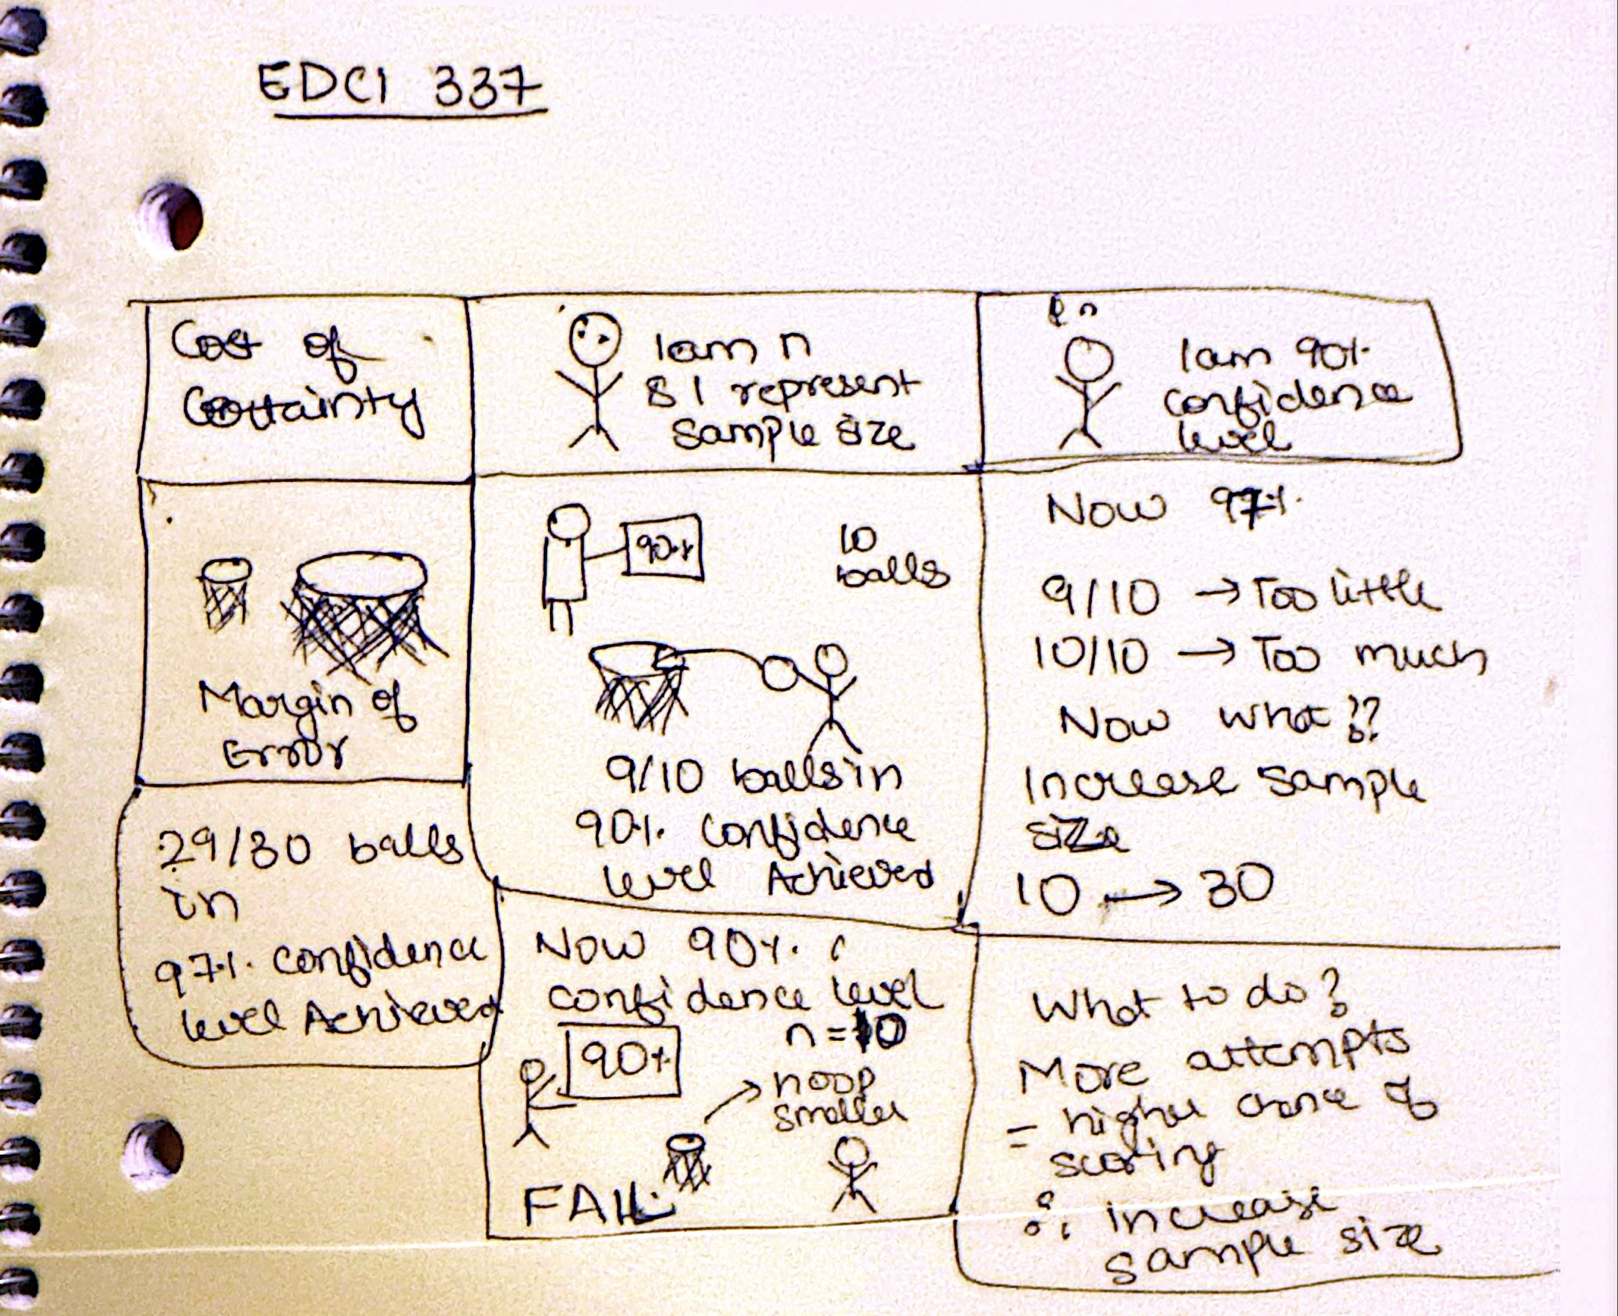 EDCI 337
Cost of
Certainty
I am n
& I represent
sample size
I am 90%
confidence
level
Margin of
Error
90%
10
balls
9/10 balls in
90% confidence
level Achieved
Now 97%
9/10 → Too little
10/10 → Too much
Now what??
Increase sample
size
10 → 30
29/30 balls
in
97% confidence
level Achieved
Now 90%
confidence level
n = 10
90%
→ hoop
smaller
FAIL
What to do?
More attempts
= higher chance of
scoring
∴ increase
sample size